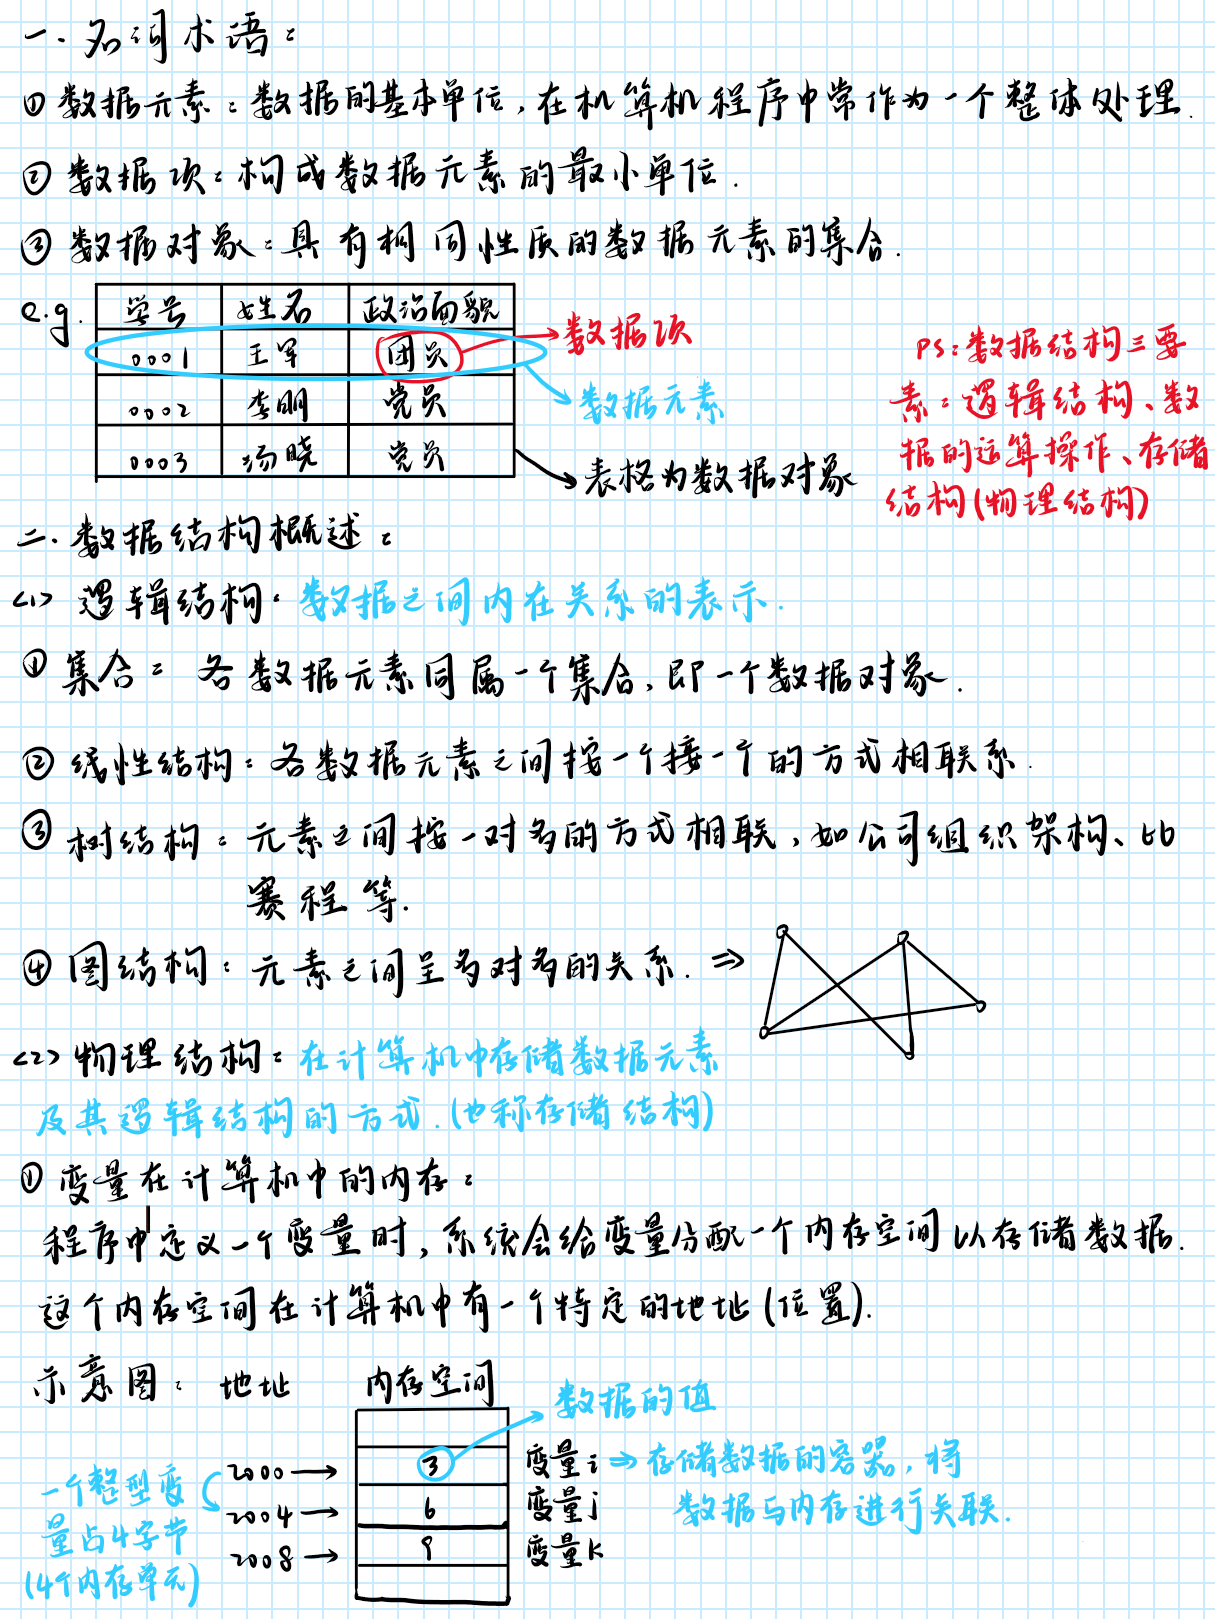 一. 名词术语:
① 数据元素:数据的基本单位,在机算机程序中常作为一个整体处理.
② 数据项:构成数据元素的最小单位.
③ 数据对象:具有相同性质的数据元素的集合.
e.g. 学号 姓名 政治面貌
0001 王军 团员
0002 李明 党员
0003 汤晓 党员
数据项
数据元素
表格为数据对象
PS:数据结构三要
素:逻辑结构、数
据的运算操作、存储
结构(物理结构)
二. 数据结构概述:
<1> 逻辑结构: 数据之间内在关系的表示.
① 集合: 各数据元素同属一个集合,即一个数据对象.
② 线性结构:各数据元素之间按一个接一个的方式相联系.
③ 树结构:元素之间按一对多的方式相联,如公司组织架构、比
赛程等.
④ 图结构:元素之间呈多对多的关系. ⇒
<2> 物理结构:在计算机中存储数据元素
及其逻辑结构的方式.(也称存储结构)
① 变量在计算机中的内存:
程序中定义一个变量时,系统会给变量分配一个内存空间以存储数据.
这个内存空间在计算机中有一个特定的地址(位置).
示意图: 地址 内存空间
数据的值
2000 → 3 变量i ⇒ 存储数据的容器,将
数据与内存进行关联.
2004 → 6 变量j
2008 → 9 变量k
一个整型变
量占4字节
(4个内存单元)